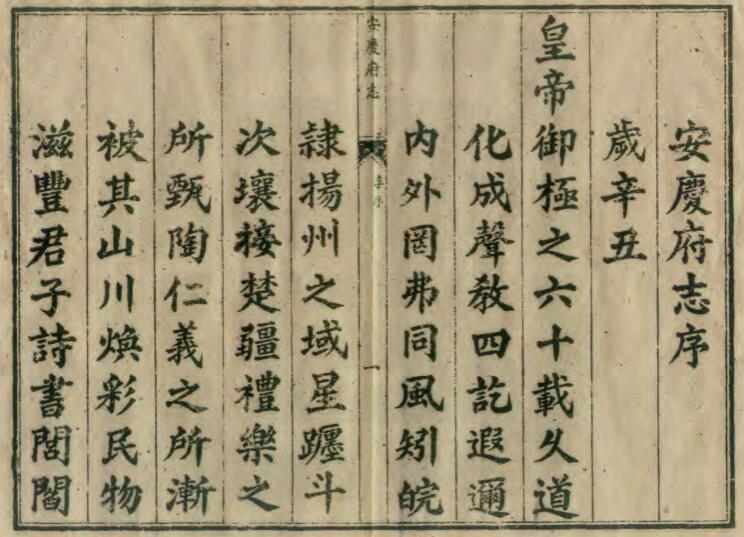 安慶府志序
歲辛丑
皇帝御極之六十載久道
化成聲教四訖遐邇
内外罔弗同風矧皖
安慶府志
李序
一
隷揚州之域星躔斗
次壤接楚疆禮樂之
所甄陶仁義之所漸
被其山川煥彩民物
滋豐君子詩書閭閻